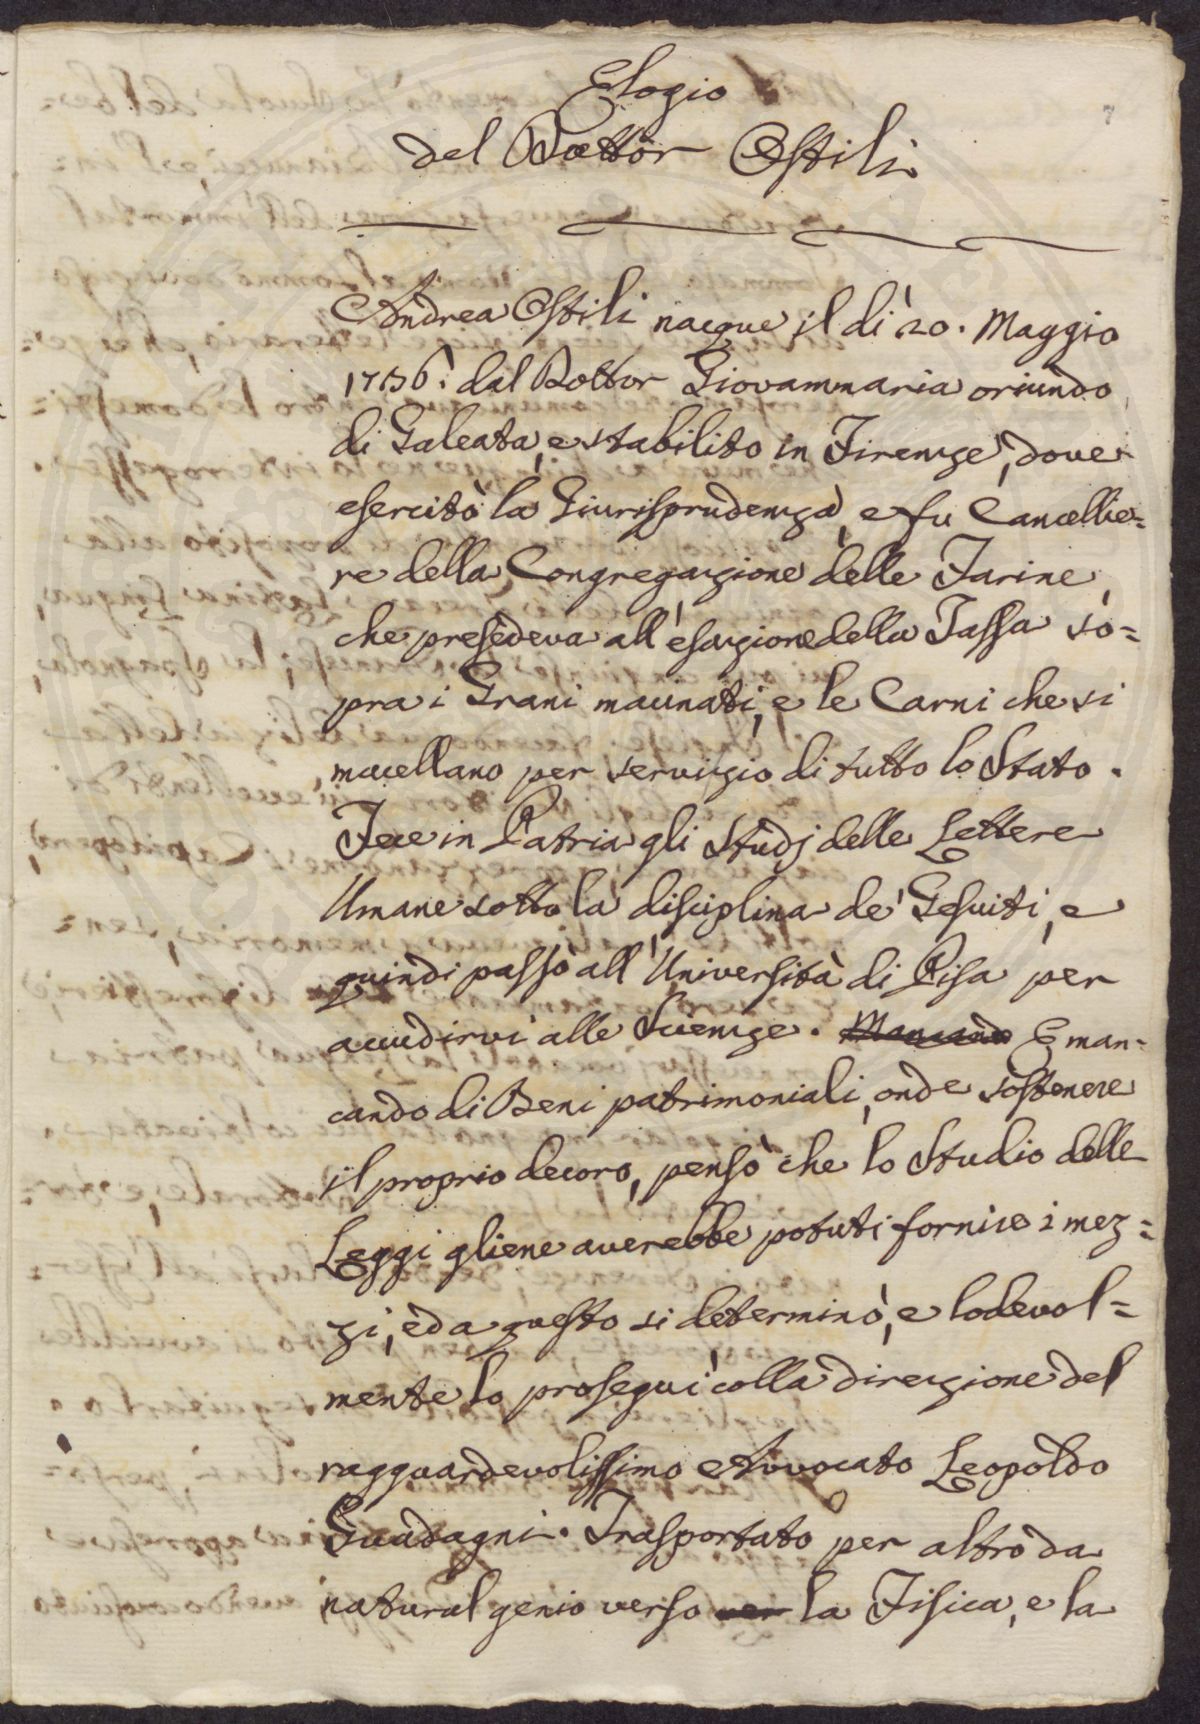 Elogio
del Dottor Ostili
Andrea Ostili nacque il dì 20. Maggio
dal Dottor Giovammaria oriundo
di Galeata, e stabilito in Firenze, dove
esercitò la Giurisprudenza, e fu Cancellie=
re della Congregazione delle Farine,
che presedeva all'esazione della Tassa so=
pra i Grani macinati, e le Carni che si
macellano per servizio di tutto lo Stato.
Fece in Patria gli Studj delle Lettere
Umane sotto la disciplina de' Gesuiti, e
quindi passò all'Università di Pisa per
accudirvi alle Scienze. Mancando E man=
cando di Beni patrimoniali, onde sostenere
il proprio decoro, pensò che lo Studio delle
Leggi gliene averebbe potuti fornire i mez=
zi, ed a questo si determinò, e lodevol=
mente lo proseguì colla direzione del
ragguardevolissimo Avvocato Leopoldo
Guadagni. Trasportato per altro da
natural genio verso ver la Fisica, e la